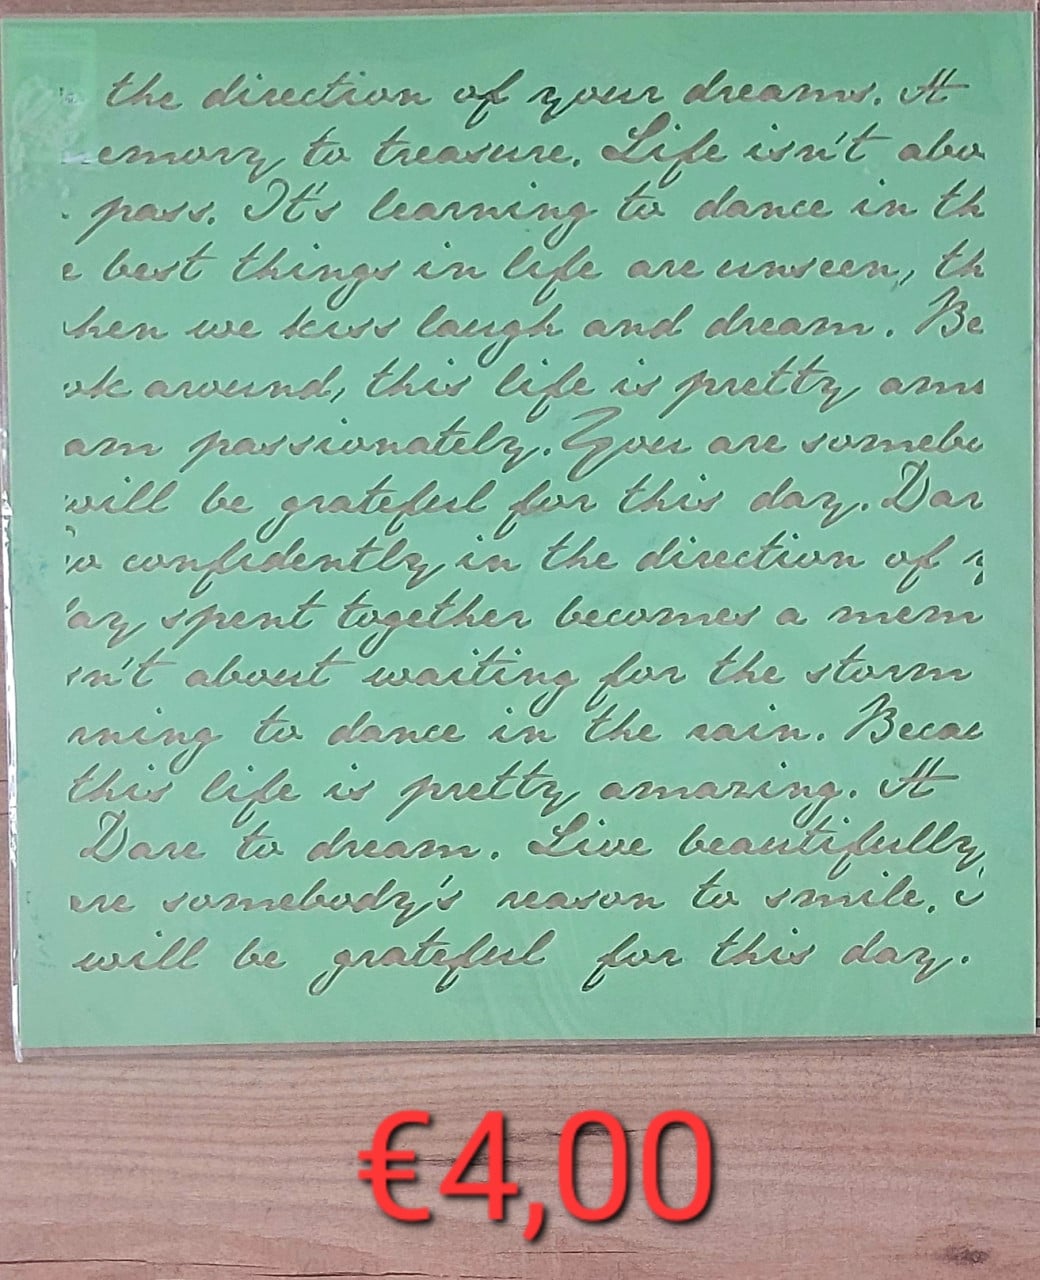 the direction of your dreams. A
emory to treasure. Life isn't abo
pass. It's learning to dance in th
e best things in life are unseen, th
hen we kiss laugh and dream. Be
ok around, this life is pretty ama
am passionately. You are somebo
will be grateful for this day. Dar
o confidently in the direction of y
ay spent together becomes a mem
sn't about waiting for the storm
rning to dance in the rain. Becau
this life is pretty amazing. A
Dare to dream. Live beautifully,
are somebody's reason to smile.
will be grateful for this day.
€4,00